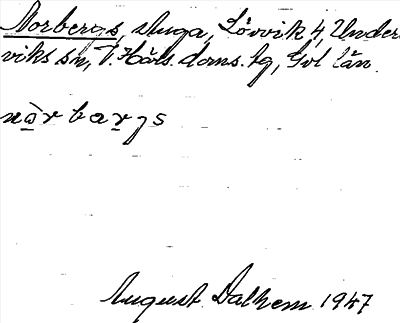 Norbergs, stuga, Lövvik 4, Under-
viks sn, V. Häls. doms. tg, Gvl län.
nòrbargs
August Dalhem 1947